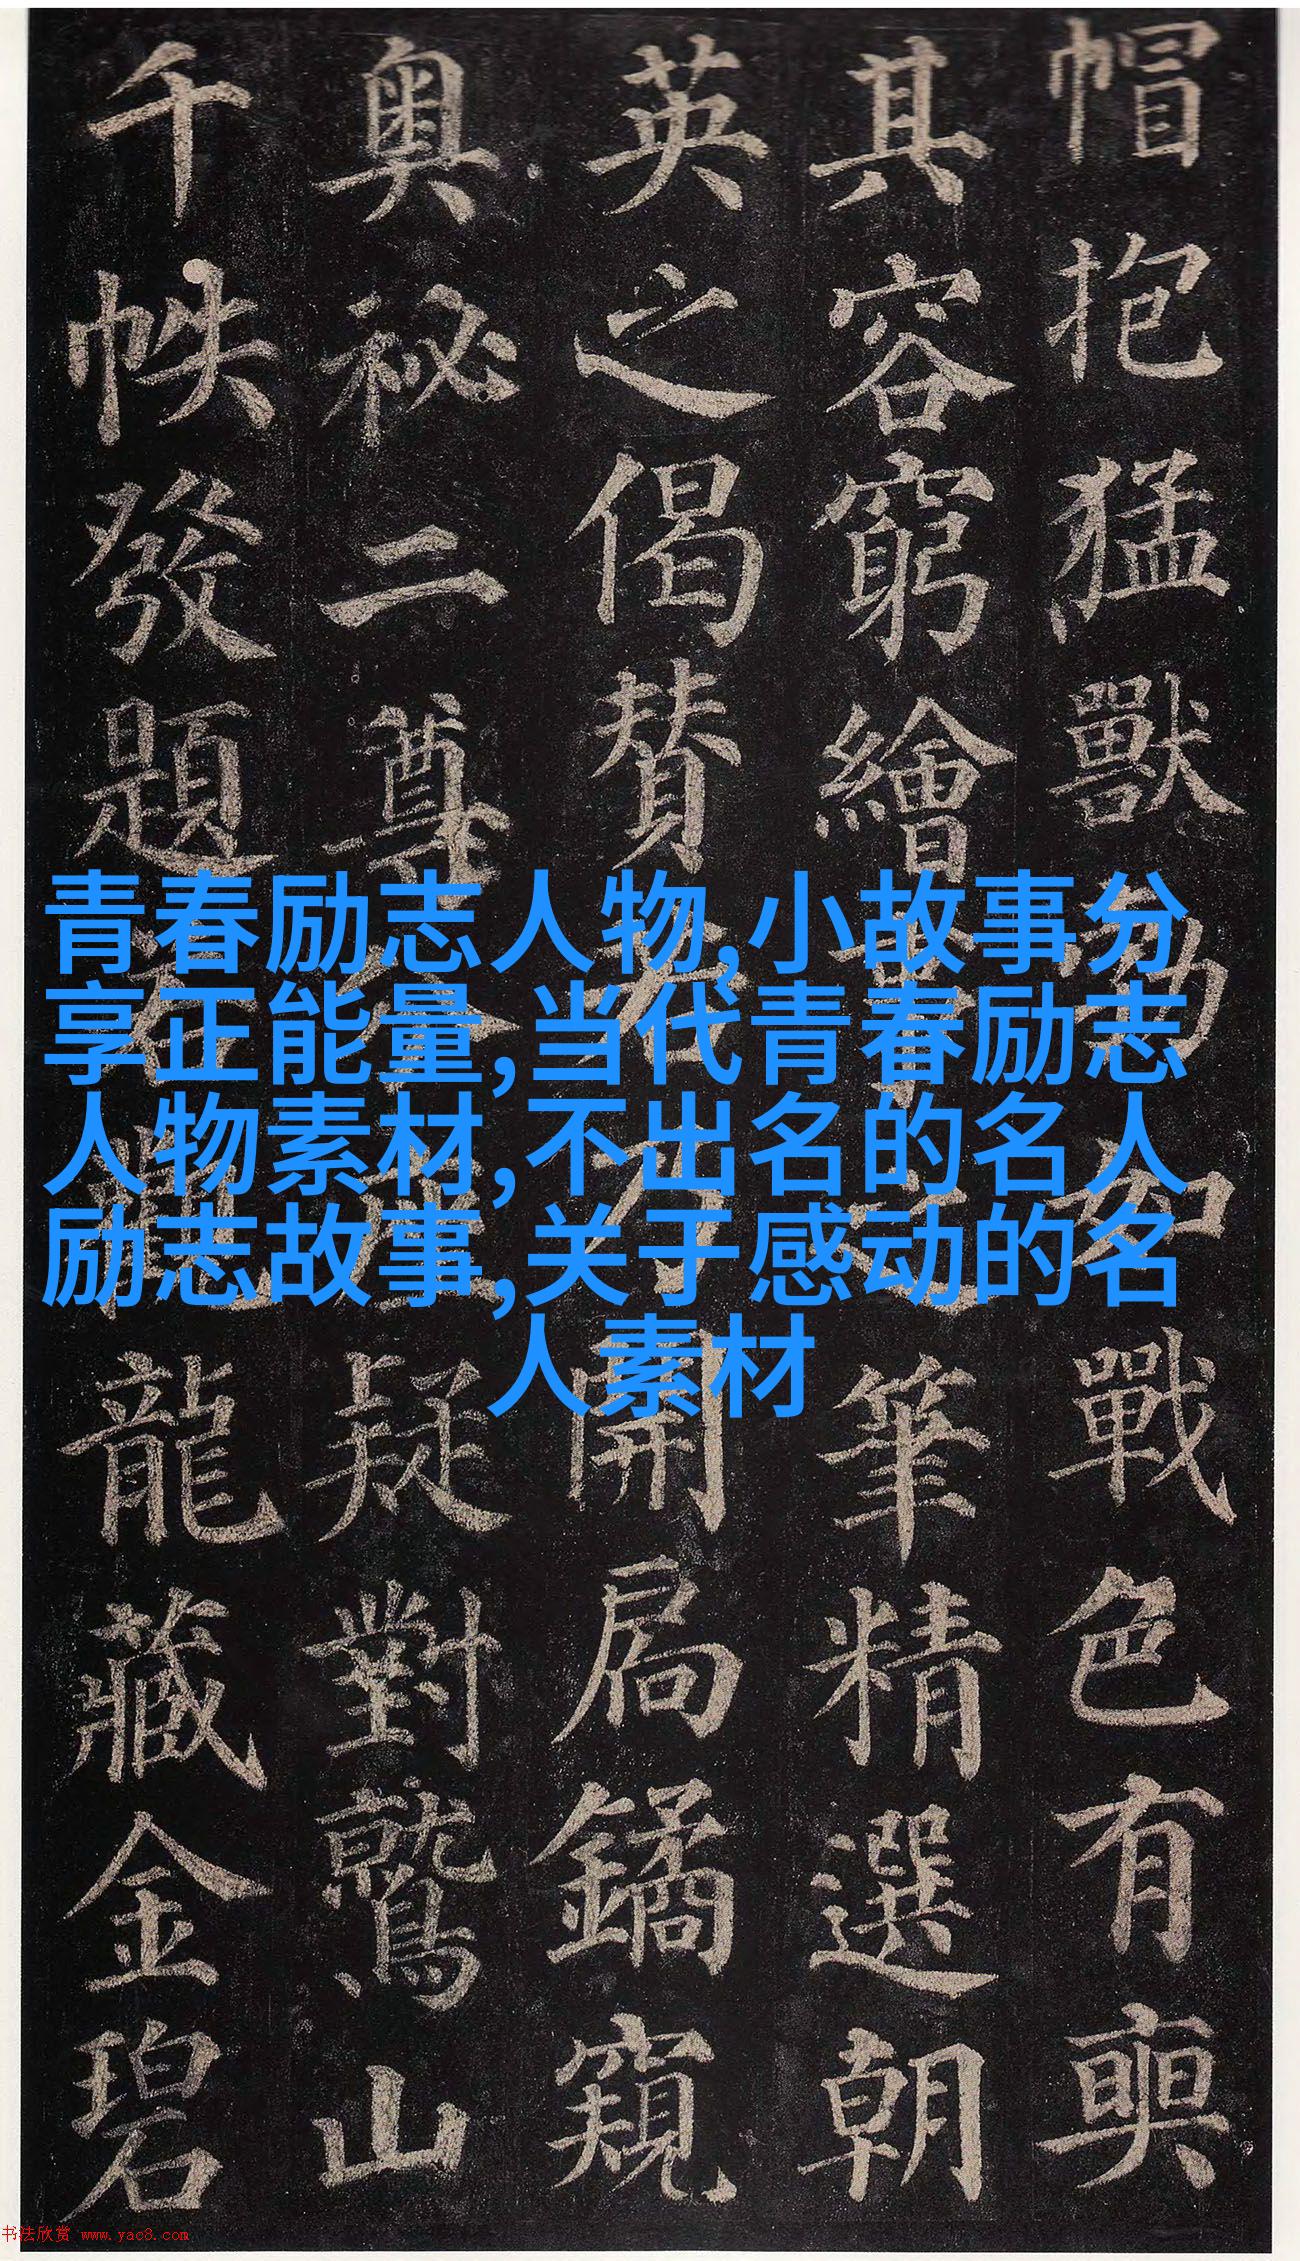 帽抱猛獸勃如戰色有奭
其容窮繪事之筆精選朝
英之偈贊若乃開扃鐍窺
奥祕二尊分座疑對鷲山
千帙發題若觀龍藏金碧
青春励志人物,小故事分
享正能量,当代青春励志
人物素材,不出名的名人
励志故事,关于感动的名
人素材
书法欣赏 www.yac8.com